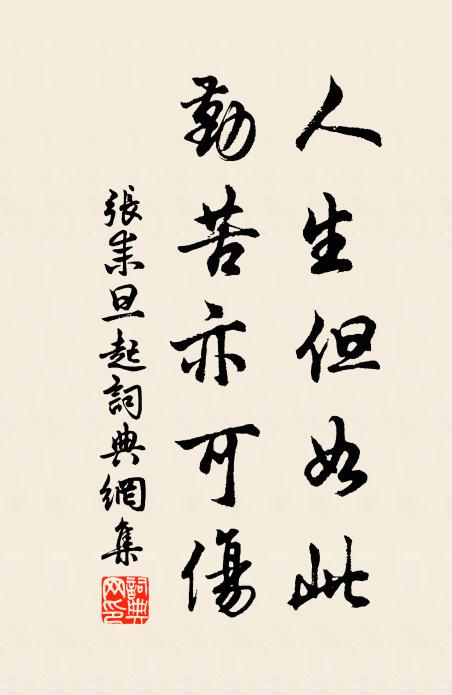 人生但如此
勤苦亦可傷
張耒旦起詞典網集
詞典網印